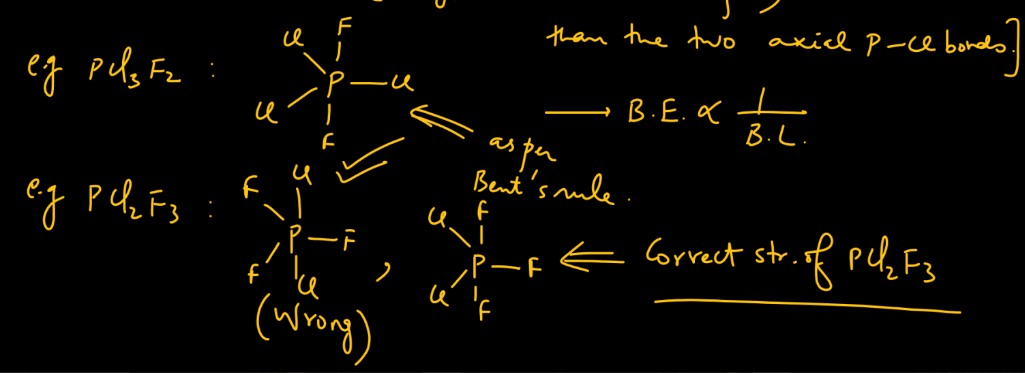 than the two axial P-Cl bonds.]
e.g PCl₃F₂ :
Cl F
P — Cl
Cl
F
→ B.E. ∝ 1/B.L.
⇐ as per
Bent's rule.
e.g PCl₂F₃ :
F Cl
P — F
F Cl
(Wrong)
,
Cl F
P — F
Cl F
⇐ Correct str. of PCl₂F₃